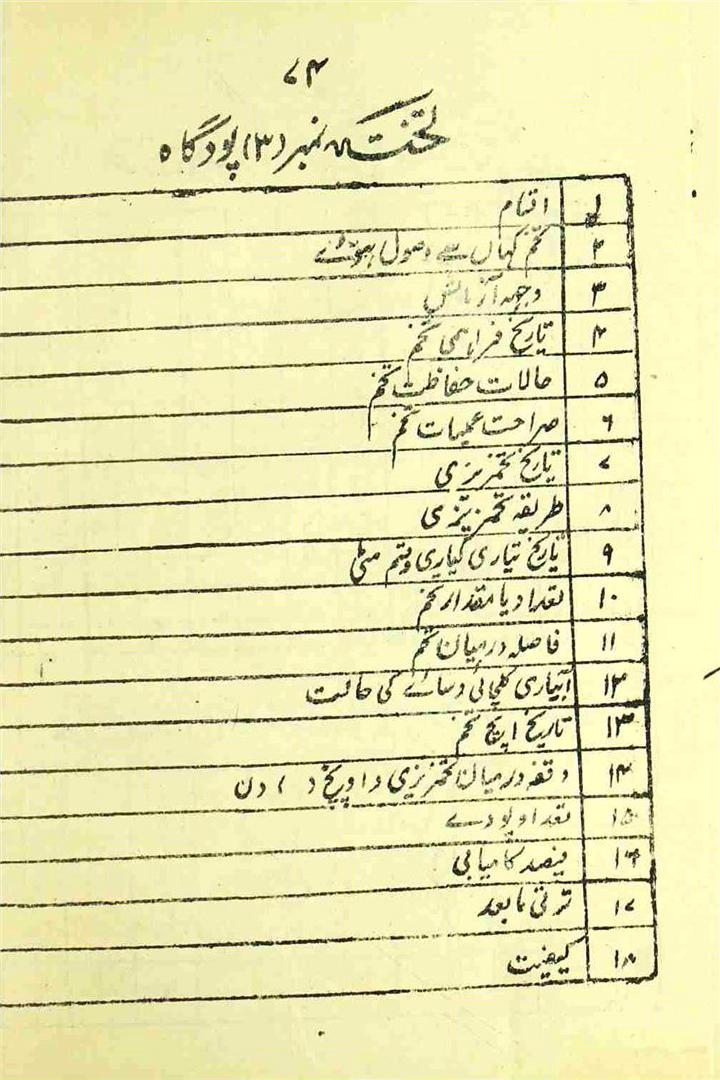 ۷۴
تختہ نمبر (۳) پودگاہ
۱ اقسام
۲ تخم کہاں سے وصول ہوئے
۳ وجہہ آزمائش
۴ تاریخ فراہمی تخم
۵ حالات حفاظت تخم
۶ صراحت عملیات تخم
۷ تاریخ تخمریزی
۸ طریقہ تخمریزی
۹ تاریخ تیاری کیاری وقسم مٹی
۱۰ تعداد یا مقدار تخم
۱۱ فاصلہ درمیان تخم
۱۲ آبپاری کلچائی وسائے کی حالت
۱۳ تاریخ اپچ تخم
۱۴ وقفہ درمیان تخمریزی و اوپچ ( ) دن
۱۵ تعداد پودے
۱۶ فیصد کامیابی
۱۷ ترقی مابعد
۱۸ کیفیت